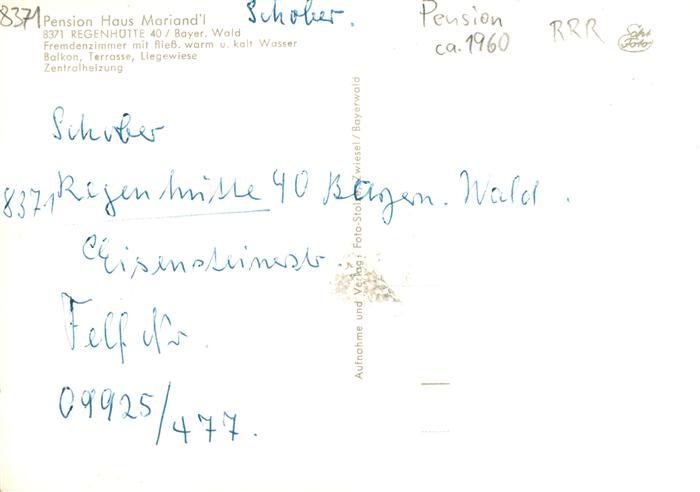 8371 Pension Haus Mariand'l
8371 REGENHÜTTE 40 / Bayer. Wald
Fremdenzimmer mit fließ. warm u. kalt Wasser
Balkon, Terrasse, Liegewiese
Zentralheizung
Schober.
Pension
ca. 1960
RRR
Echt
Foto
Schober
8371 Regenhütte 40 Bayern. Wald.
Eisensteinerstr.
Telf Nr.
09925/477.
Aufnahme und Verlag: Foto-Stolz, Zwiesel / Bayerwald